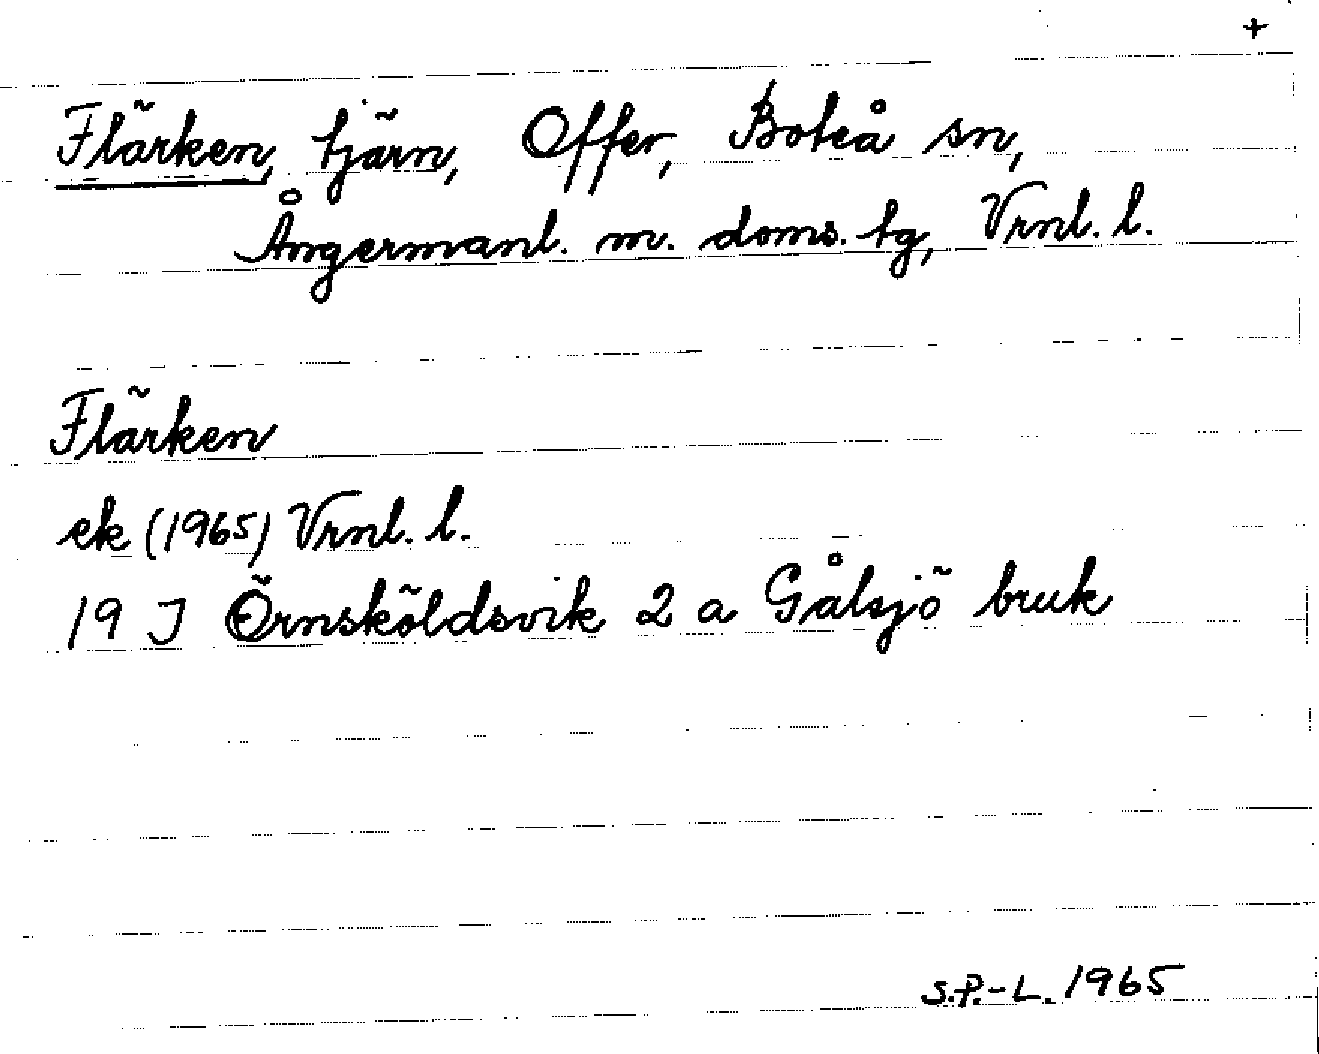 +
Flärken, tjärn, Offer, Boteå sn,
Ångermanl. m. doms. tg, Vrnl. l.
Flärken
ek (1965) Vrnl. l.
19 J Örnsköldsvik 2 a Gålsjö bruk
S.P.-L. 1965